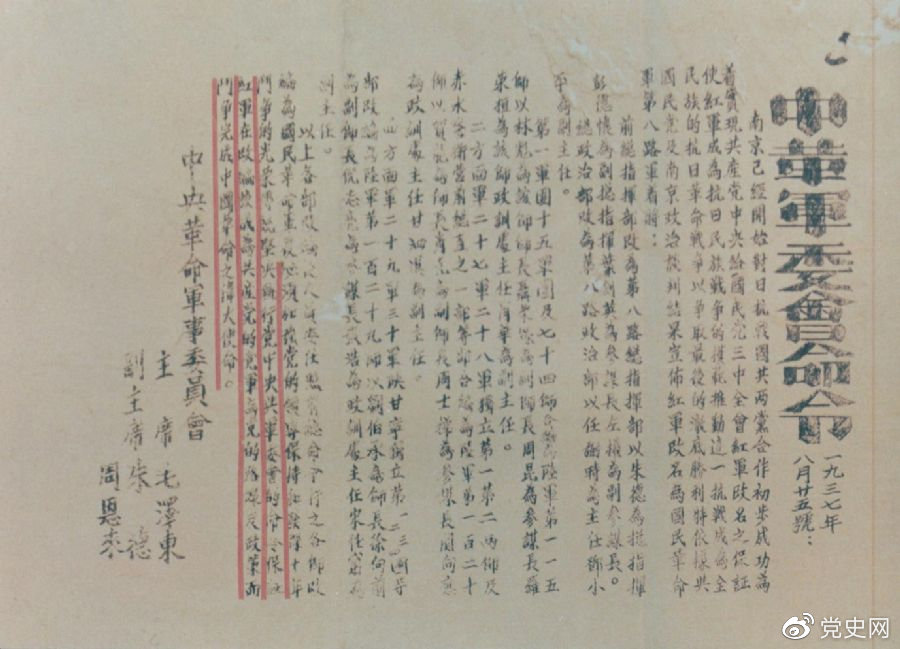 中革軍委會命令
一九三七年
八月廿五號：
南京已經開始對日抗戰國共兩黨合作初步成功為
着實現共產党中央給國民党三中全會紅軍改名之保証
使紅軍成為抗日民族戰爭的模範推動這一抗戰成為全
民族的抗日革命戰爭以爭取最後的徹底勝利特依據共
國民党及南京政治談判結果宣佈紅軍改名為國民革命
軍第八路軍着將：
前總指揮部改為第八路總指揮部以朱德為總指揮
彭德懷為副總指揮葉劍英為參謀長左權為副參謀長。
總政治部改為第八路政治部以任弼時為主任鄧小
平為副主任。
第一軍團十五軍團及七十四師合編為陸軍第一一五
師以林彪為該師師長聶榮臻為副師長周昆為參謀長羅
榮桓為該師政訓處主任肖華為副主任。
二方面軍二十七軍二十八軍獨立第一第二兩師及
赤水警衛營前總直之一部等部合編為陸軍第一百二十
師以賀龍為師長肖克為副師長周士擇為參謀長関向应
為政訓處主任甘泗淇為副主任。
四方面軍二十九軍三十軍陝甘寧獨立第一二三四等
部改編為陸軍第一百二十九師以劉伯承為師長徐向前
為副師長倪志亮為參謀長張浩為政訓處主任宋任窮為
副主任。
以上各部改編後人員委任照前總命令行之各部改
編為國民革命軍後必須加強党的領導保持和發揮十年
鬥爭的光榮傳統堅決執行党中央與軍委會的命令保証
紅軍在改編後成為共產党的党軍為党的路線及政策而
鬥爭完成中國革命之偉大使命。
中央革命軍事委員會
主席毛澤東
副主席朱德
周恩来
党史网